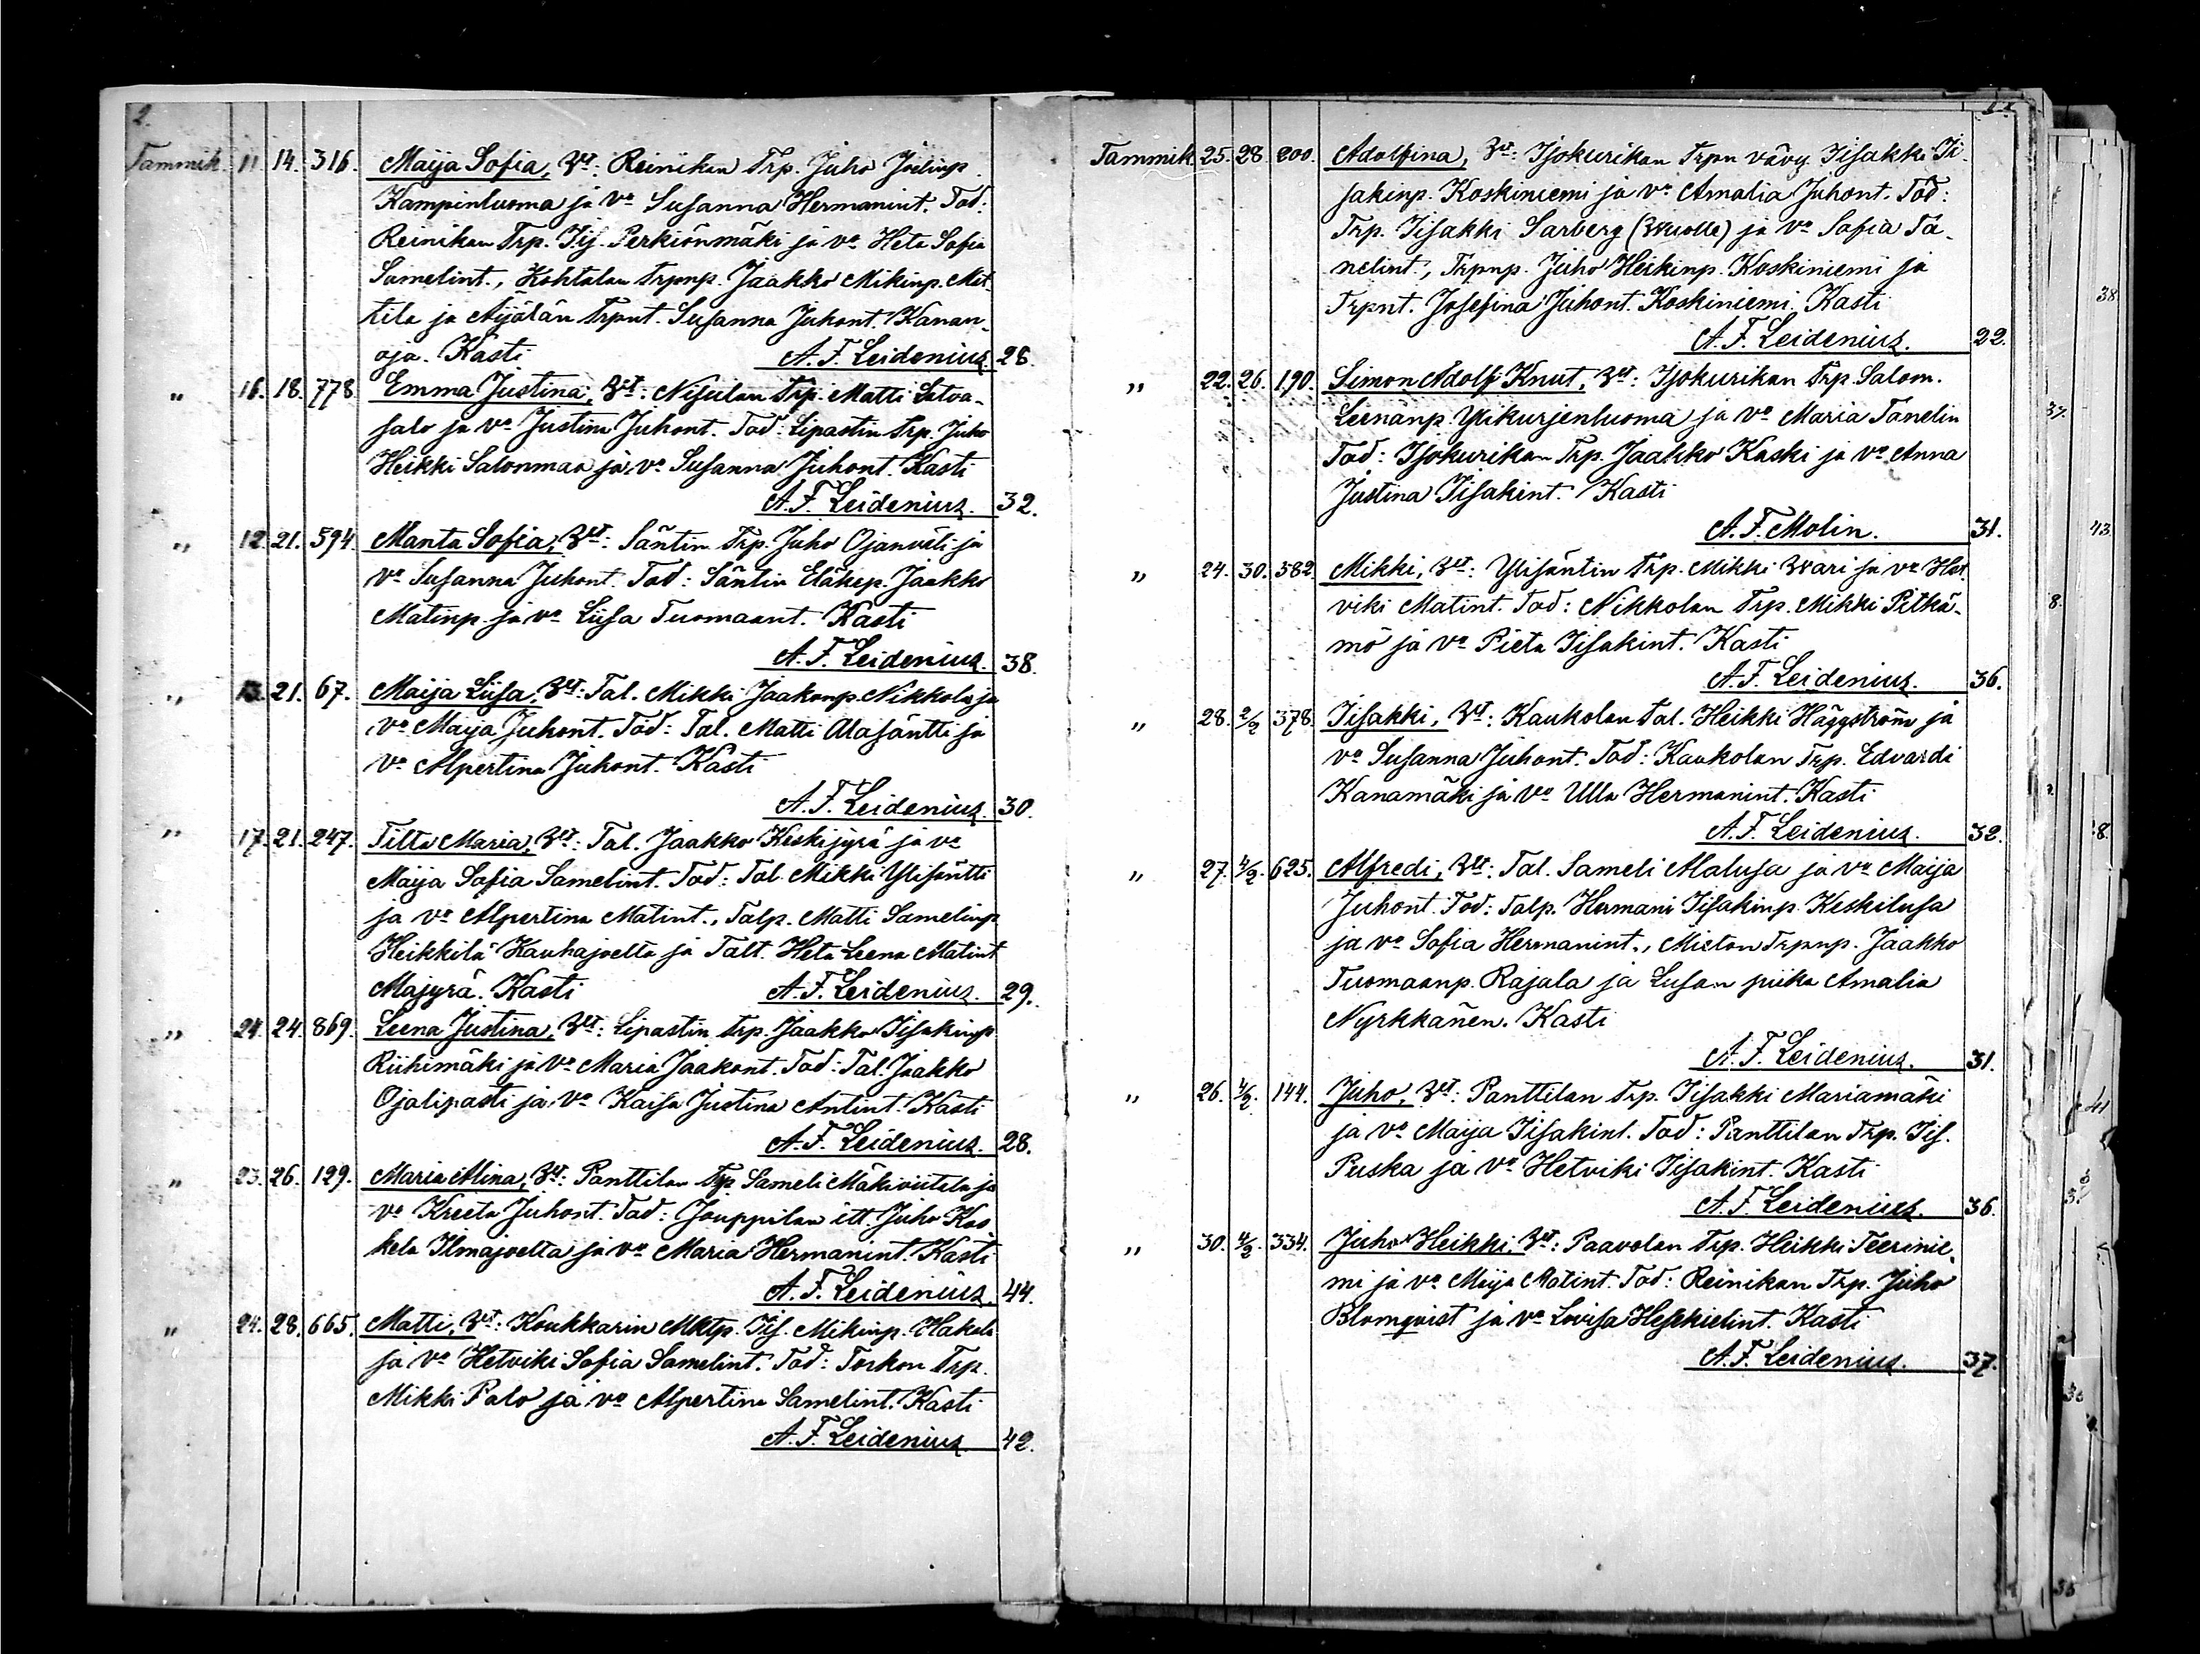 2.
Tammik. 11 14. 316. Maija Sofia, Vst: Reinikan Trp. Juho Joelinp.
Kampinluoma ja vo Susanna Hermanint. Tod:
Reinikan Trp. Iis. Perkiönmäki ja vo Heta Sofia
Samelint., Kohtalan trpnp. Jaakko Mikinp. Mat-
tila ja Äijälän Trpnt. Susanna Juhont. Kanan-
oja. Kasti A. F. Leidenius. 28
" 16. 18. 778 Emma Justina, Vst: Nisulan Trp. Matti Latva-
salo ja vo Justina Juhont. Tod: Lipastin Trp. Juho
Heikki Salonmaa ja vo Susanna Juhont. Kasti
A. F. Leidenius. 32.
" 12. 21. 594 Manta Sofia, Vst: Säntin Trp. Juho Ojanväli ja
vo Susanna Juhont. Tod: Säntin Eläkep. Jaakko
Matinp. ja vo Liisa Tuomaant. Kasti
A. F. Leidenius. 38.
" 13. 21. 67. Maija Liisa, Vst: Tal. Mikki Jaakonp. Nikkola ja
vo Maija Juhont. Tod: Tal. Matti Alasäntti ja
vo Alpertina Juhont. Kasti
A. F. Leidenius. 30.
" 17. 21. 247. Tilta Maria, Vst: Tal. Jaakko Keskijyrä ja vo
Maija Sofia Samelint. Tod: Tal. Mikki Ylisäntti
ja vo Alpertina Matint., Talp. Matti Samelinp.
Heikkilä Kauhajoelta ja Talt. Heta Leena Matint.
Majyrä. Kasti A. F. Leidenius. 29.
" 24. 24. 869. Leena Justina, Vst: Lipastin trp. Jaakko Iisakinp.
Riihimäki ja vo Maria Jaakont. Tod: Tal. Jaakko
Ojalipasti ja vo Kaisa Justina Antint. Kasti
A. F. Leidenius. 28.
" 23. 26. 129. Maria Alina, Vst: Panttilan Trp. Sameli Mäkiviitela ja
vo Kreeta Juhont. Tod: Jouppilan itt. Juho Kos-
kela Ilmajoelta ja vo Maria Hermanint. Kasti
A. F. Leidenius. 44.
" 24. 28. 665. Matti, Vst: Koukkarin Mktp. Iis. Mikinp. Hakala
ja vo Hetviki Sofia Samelint. Tod: Torkon Trp.
Mikki Palo ja vo Alpertina Samelint. Kasti
A. F. Leidenius. 42.
Tammik. 25. 28 200. Adolfina, Vst: Isokurikan Trpn vävy Iisakki Ii-
sakinp. Koskiniemi ja vo Amalia Juhont. Tod:
Trp. Iisakki Sarberg (Wuolle) ja vo Sofia Ta-
nelint., Trpnp. Juho Heikinp. Koskiniemi ja
Trpnt. Josefina Juhont. Koskiniemi. Kasti
A. F. Leidenius. 22.
" 22. 26. 190. Simon Adolf Knut, Vst: Isokurikan Trp. Salom.
Leenanp. Ylikurjenluoma ja vo Maria Tanelin
Tod: Isokurikan Trp. Jaakko Kaski ja vo Anna
Justina Iisakint. Kasti
A. F. Molin. 31.
" 24. 30. 382. Mikki, Vst: Ylisäntin Trp. Mikki Wari ja vo Het-
viki Matint. Tod: Nikkolan Trp. Mikki Pitkä-
mö ja vo Pieta Iisakint. Kasti
A. F. Leidenius. 36.
" 28. 2/2 378. Iisakki, Vst: Kaukolan Tal. Heikki Häggström ja
vo Susanna Juhont. Tod: Kaukolan Trp. Edvardi
Kanamäki ja vo Ulla Hermanint. Kasti
A. F. Leidenius. 32.
" 27. 4/2. 625. Alfredi, Vst: Tal. Sameli Alalusa ja vo Maija
Juhont. Tod: Talp. Hermani Iisakinp. Keskilusa
ja vo Sofia Hermanint., Mieton Trpnp. Jaakko
Tuomaanp. Rajala ja Lusan piika Amalia
Nyrkkänen. Kasti
A. F. Leidenius. 31.
" 26. 4/2. 144. Juho, Vst: Panttilan Trp. Iisakki Mariamäki
ja vo Maija Iisakint. Tod: Panttilan Trp. Iis.
Puska ja vo Hetviki Iisakint. Kasti
A. F. Leidenius. 36.
" 30. 4/2 334. Juho Heikki, Vst: Paavolan Trp. Heikki Teerinie-
mi ja vo Maija Matint. Tod: Reinikan Trp. Juho
Blomqvist ja vo Lovisa Heskielint. Kasti
A. F. Leidenius. 37.